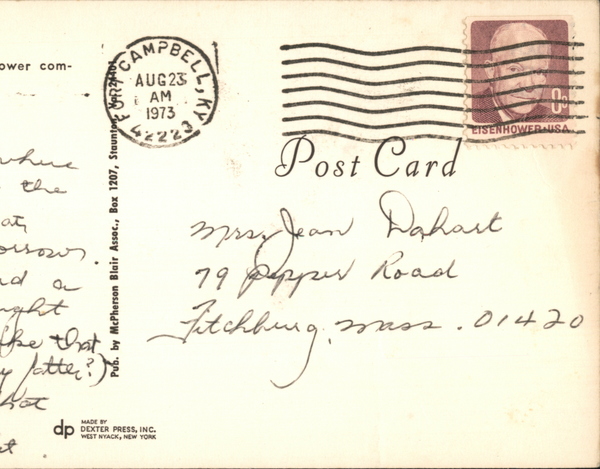 ower com-
FT. CAMPBELL, KY
AUG 23
AM
1973
42223
8c
EISENHOWER·USA
Post Card
where
the
at
orrow
d a
ght
ke that
y latter?)
hot
Pub. by McPherson Blair Assoc., Box 1207, Staunton, Va. 24401
Mrs. Jean Dahart
79 Pepper Road
Fitchburg, Mass. 01420
dp
MADE BY
DEXTER PRESS, INC.
WEST NYACK, NEW YORK